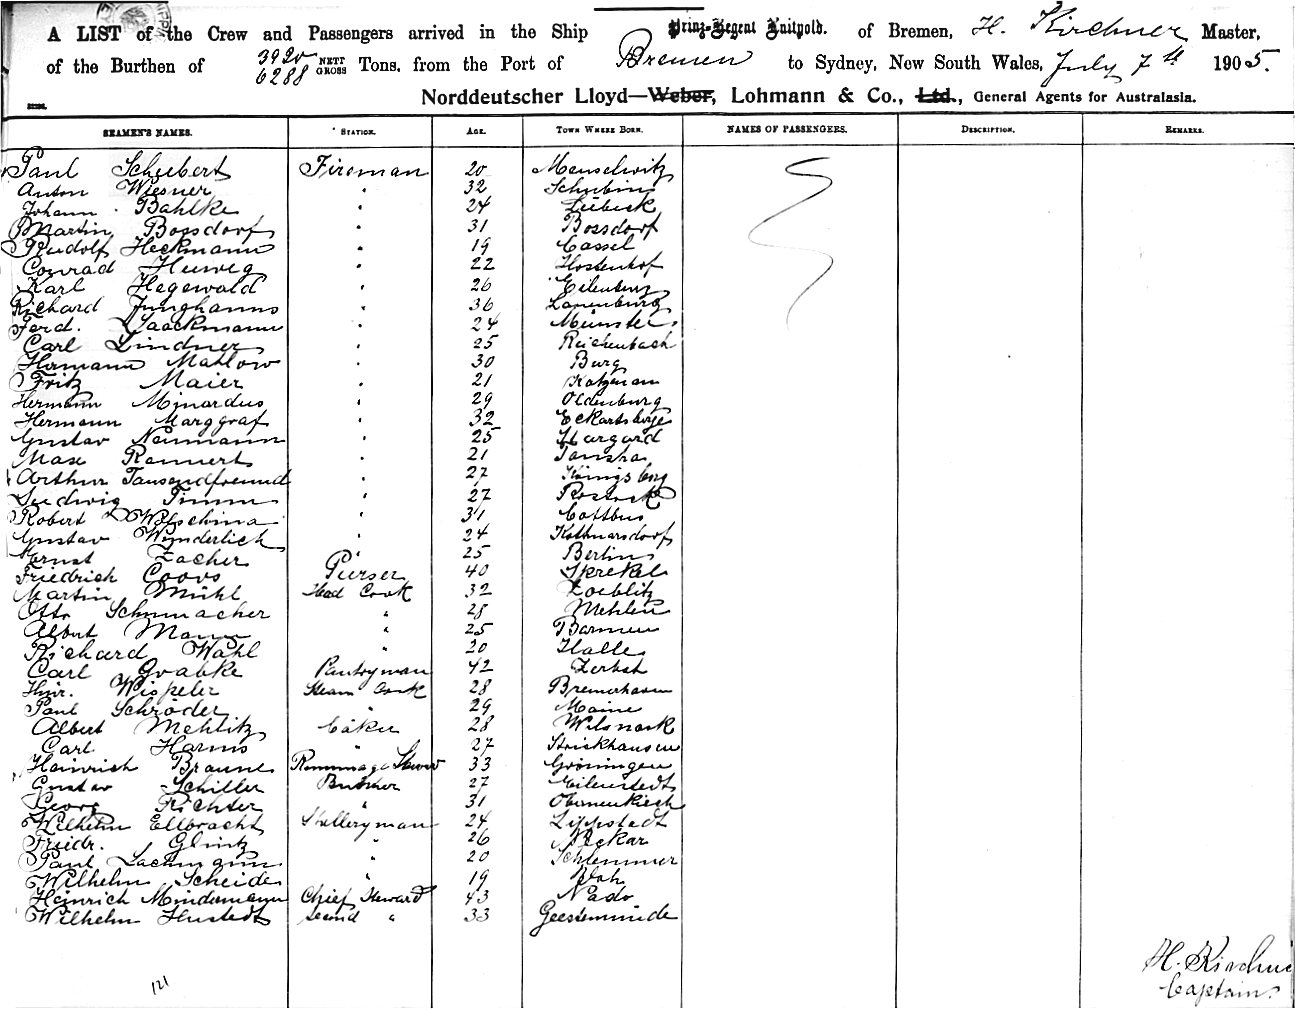 A LIST of the Crew and Passengers arrived in the Ship Prinz-Regent Luitpold. of Bremen, H. Kirchner Master,
of the Burthen of 3920 NETT 6288 GROSS Tons, from the Port of Bremen to Sydney, New South Wales, July 7th 1905.
Norddeutscher Lloyd—Weber, Lohmann & Co., Ltd., General Agents for Australasia.
SEAMEN'S NAMES. STATION. AGE. TOWN WHERE BORN. NAMES OF PASSENGERS. DESCRIPTION. REMARKS.
Paul Schubert Fireman 20 Menselwitz
Anton Wiesner " 32 Schubin
Johann Bahlke " 24 Lübeck
Martin Bossdorf " 31 Bossdorf
Rudolf Heckmann " 19 Cassel
Conrad " 22
Karl Hegewald " 26 Eilenburg
Richard Junghanns " 36 Lauenburg
Ferd. Laackmann " 24 Münster
Carl Lindner " 25 Reichenbach
Hermann Mahlow " 30 Burg
Fritz Maier " 21
Hermann Minardus " 29 Oldenburg
Hermann Marggraf " 32
Gustav Neumann " 25 Stargard
Max Rennert " 21
Arthur Tausendfreund " 27 Königsberg
Ludwig Timm " 27 Rostock
Robert " 31 Cottbus
Gustav Wunderlich " 24 Kottmarsdorf
Ernst Zacher " 25 Berlin
Friedrich Coors Purser 40 Sprekel
Martin Mühl Head Cook 32 Zoeblitz
Otto Schumacher " 28 Mehlen
Albert Mann " 25 Barmen
Richard Wahl " 20 Halle
Carl Grabke Pantryman 42 Zerbst
Heinr. Wispeler Steam Cook 28 Bremerhaven
Paul Schröder " 29
Albert Mehlitz Baker 28 Wilsnack
Carl Harms " 27 Strickhausen
Heinrich Braune 33 Gröningen
Gustav Schiller Butcher 27 Eilenstedt
Georg Richter " 31 Obernenkirch
Wilhelm Ellbracht Skulleryman 24 Lippstedt
Friedr. Glintz " 26 Neckar
Paul Lachmann " 20 Schlemmer
Wilhelm Scheide " 19
Heinrich Mindermann Chief Steward 43 Nado
Wilhelm Hustedt second " 33 Geestemünde
H. Kirchner
Captain.
121